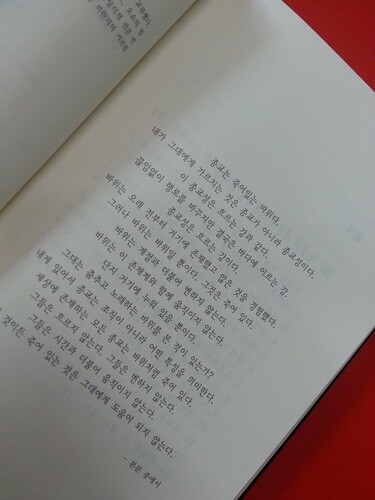 종교는 죽어있는 바위다.
내가 그대에게 가르치는 것은 종교가 아니라 종교성이다.
이 종교성은 흐르는 강과 같다.
끊임없이 행로를 바꾸지만 결국은 바다에 이르는 강.
종교성은 흐르는 강이다.
바위는 오래 전부터 거기에 존재했고 많은 것을 경험했다.
그러나 바위는 바위일 뿐이다. 그것은 죽어 있다.
바위는 계절과 더불어 변하지 않는다.
바위는 이 존재계와 함께 움직이지 않는다.
단지 거기에 누워 있을 뿐이다.
그대는 춤추고 노래하는 바위를 본 적이 있는가?
내게 있어서 종교는 조직이 아니라 어떤 특성을 의미한다.
세상에 존재하는 모든 종교는 바위처럼 죽어 있다.
그들은 흐르지 않는다. 그들은 변하지 않는다.
그들은 시간과 더불어 움직이지 않는다.
것이든 죽어 있는 것은 그대에게 도움이 되지 않는다.
- 본문 중에서